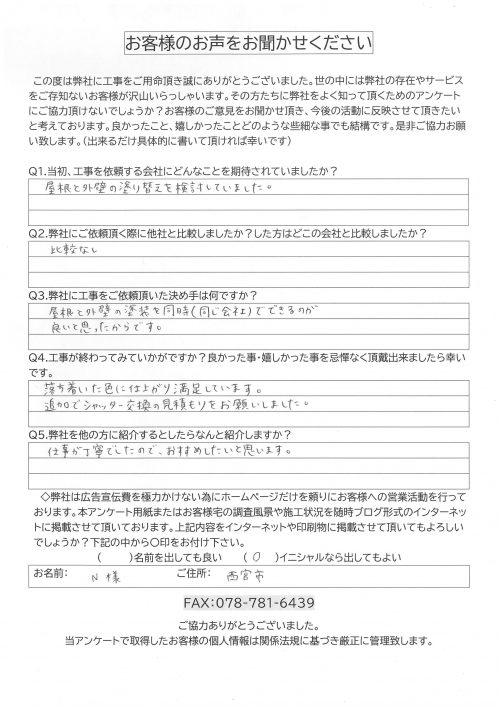 お客様のお声をお聞かせください
この度は弊社に工事をご用命頂き誠にありがとうございました。世の中には弊社の存在やサービス
をご存知ないお客様が沢山いらっしゃいます。その方たちに弊社をよく知って頂くためのアンケート
にご協力頂けないでしょうか？お客様のご意見をお聞かせ頂き、今後の活動に反映させて頂きたい
と考えております。良かったこと、嬉しかったことどのような些細な事でも結構です。是非ご協力お願
い致します。（出来るだけ具体的に書いて頂ければ幸いです）
Q1.当初、工事を依頼する会社にどんなことを期待されていましたか？
屋根と外壁の塗り替えを検討していました。
Q2.弊社にご依頼頂く際に他社と比較しましたか？した方はどこの会社と比較しましたか？
比較なし
Q3.弊社に工事をご依頼頂いた決め手は何ですか？
屋根と外壁の塗装を同時(同じ会社)でできるのが
良いと思ったからです。
Q4.工事が終わってみていかがですか？良かった事・嬉しかった事を忌憚なく頂戴出来ましたら幸い
です。
落ち着いた色に仕上がり満足しています。
追加でシャッター交換の見積もりをお願いしました。
Q5.弊社を他の方に紹介するとしたらなんと紹介しますか？
仕事が丁寧でしたので、おすすめしたいと思います。
◇弊社は広告宣伝費を極力かけない為にホームページだけを頼りにお客様への営業活動を行って
おります。本アンケート用紙またはお客様宅の調査風景や施工状況を随時ブログ形式のインターネッ
トに掲載させて頂いております。上記内容をインターネットや印刷物に掲載させて頂いてもよろしい
でしょうか？下記の中から〇印をお付け下さい。
（　　）名前を出しても良い　（ ○ ）イニシャルなら出してもよい
お名前：　N 様　ご住所：　西宮市
FAX：078-781-6439
ご協力ありがとうございました。
当アンケートで取得したお客様の個人情報は関係法規に基づき厳正に管理致します。